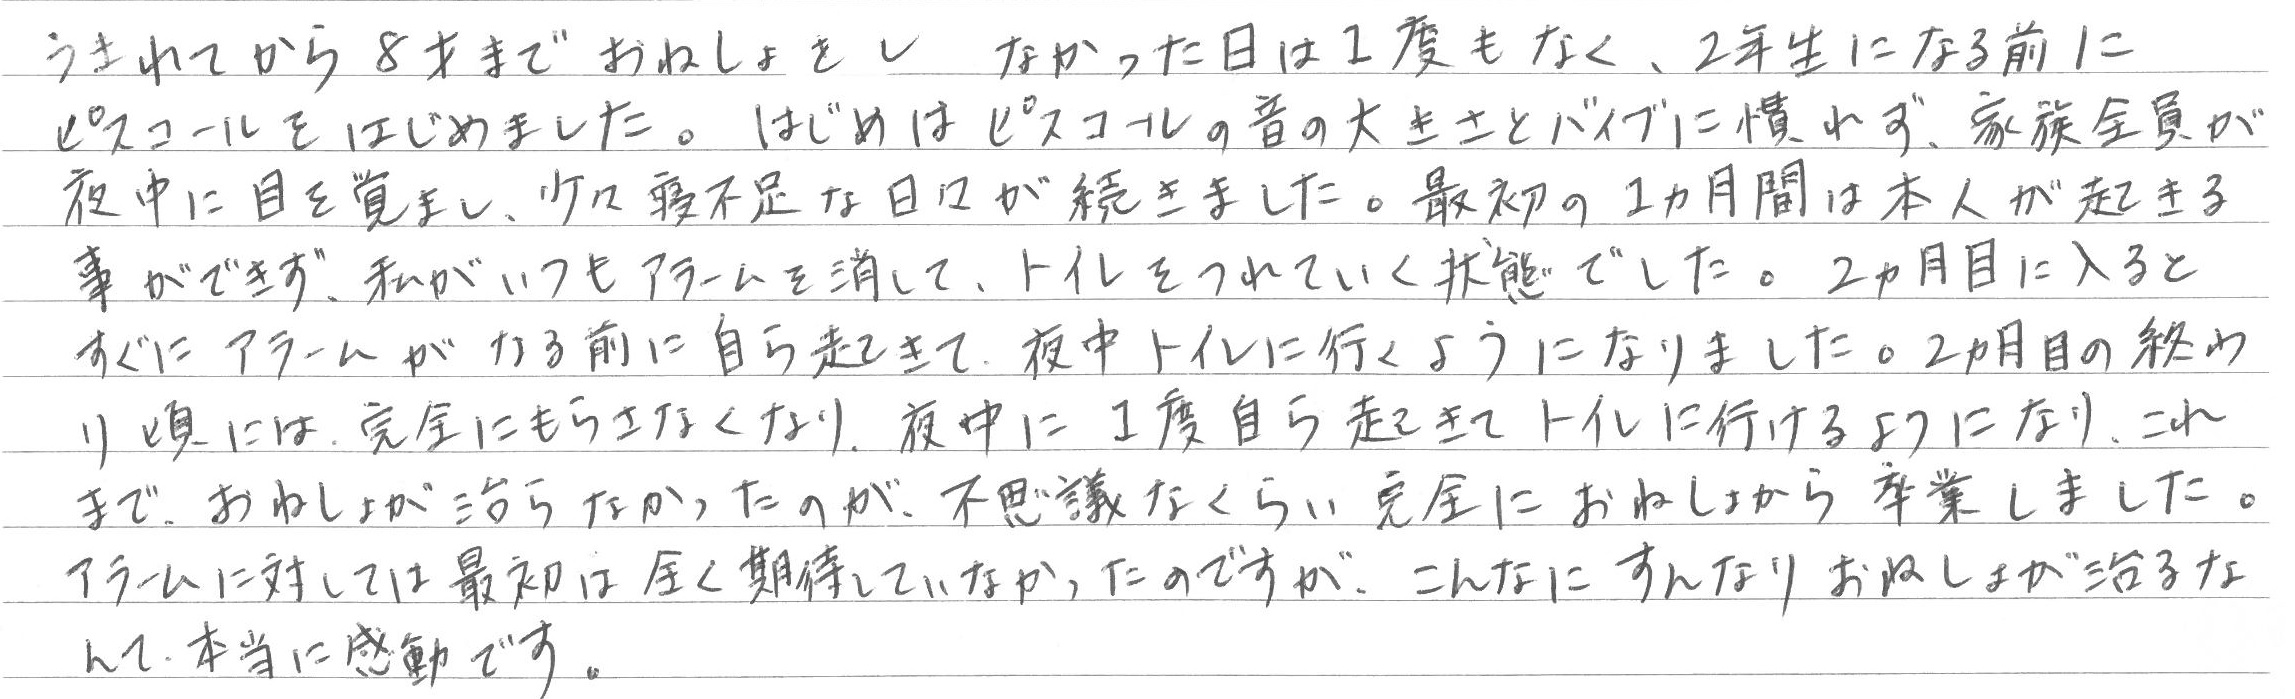 うまれてから8才までおねしょをし なかった日は1度もなく、2年生になる前に
ピスコールをはじめました。はじめはピスコールの音の大きさとバイブに慣れず、家族全員が
夜中に目を覚まし、少々寝不足な日々が続きました。最初の1カ月間は本人が起きる
事ができず、私がいつもアラームを消して、トイレをつれていく状態でした。2ヵ月目に入ると
すぐにアラームがなる前に自ら起きて、夜中トイレに行くようになりました。2ヵ月目の終わ
り頃には、完全にもらさなくなり、夜中に1度自ら起きてトイレに行けるようになり、これ
まで、おねしょが治らなかったのが、不思議なくらい完全におねしょから卒業しました。
アラームに対しては最初は全く期待していなかったのですが、こんなにすんなりおねしょが治るな
んて、本当に感動です。